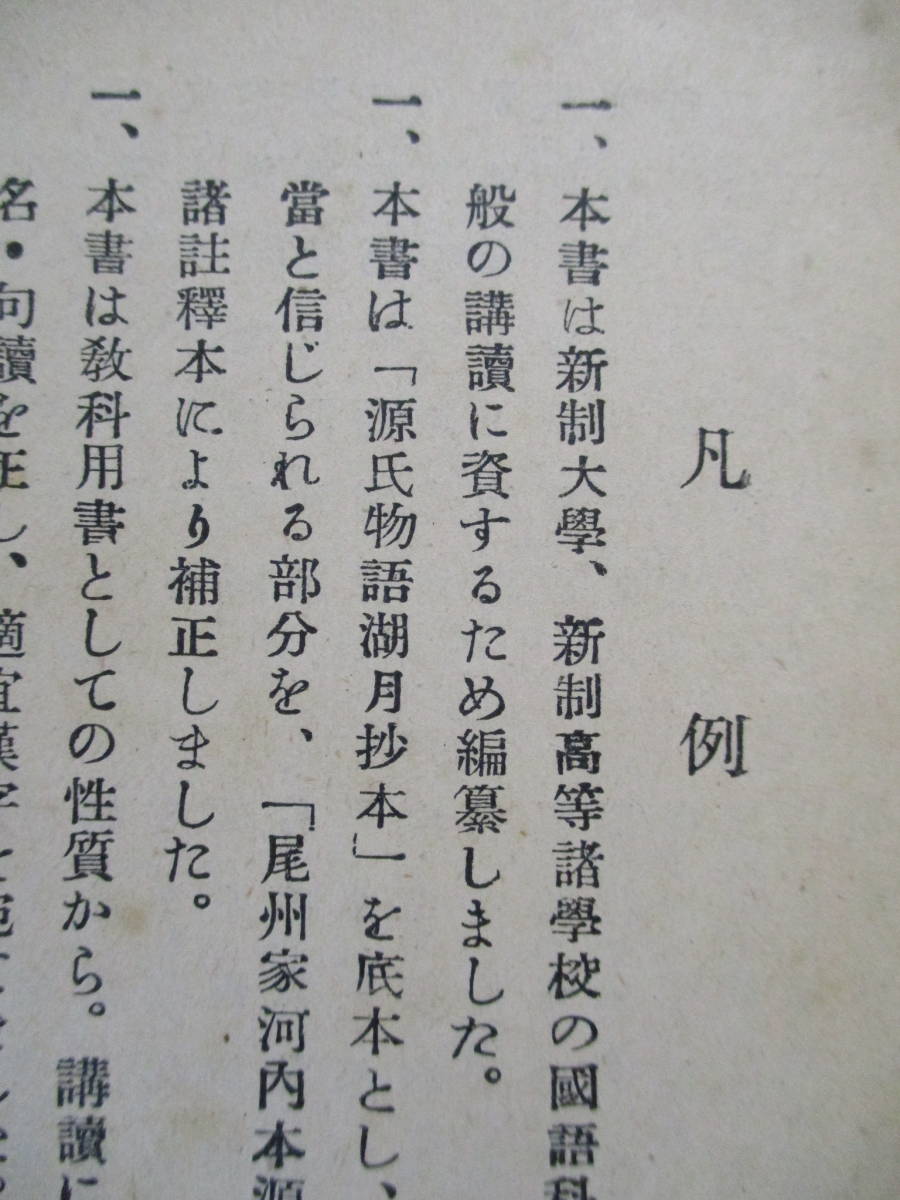 凡例
一、本書は新制大學、新制高等諸學校の國語科
般の講讀に資するため編纂しました。
一、本書は「源氏物語湖月抄本」を底本とし、
當と信じられる部分を、「尾州家河內本源
諸註釋本により補正しました。
一、本書は敎科用書としての性質から。講讀に
名・句讀を正し、適宜漢字を宛てました。